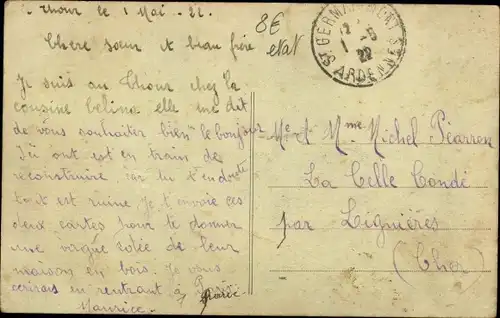 Thour le 1 Mai - 22.
8€
état
Chère sœur et beau frère
Je suis au Thour chez la
cousine Celina elle me dit
de vous souhaiter bien le bonjour
Ici ont est en train de
reconstruire car tu t'en doute
tout est ruine je t'envoie ces
deux cartes pour te donner
une vague idée de leur
maison en bois. Je vous
écrirais en rentrant à
Maurice.
St GERMAINMONT
1 - 5
22
ARDENNES
Mr et Mme Michel Péarron
La Celle Condé
par Lignières
(Cher)